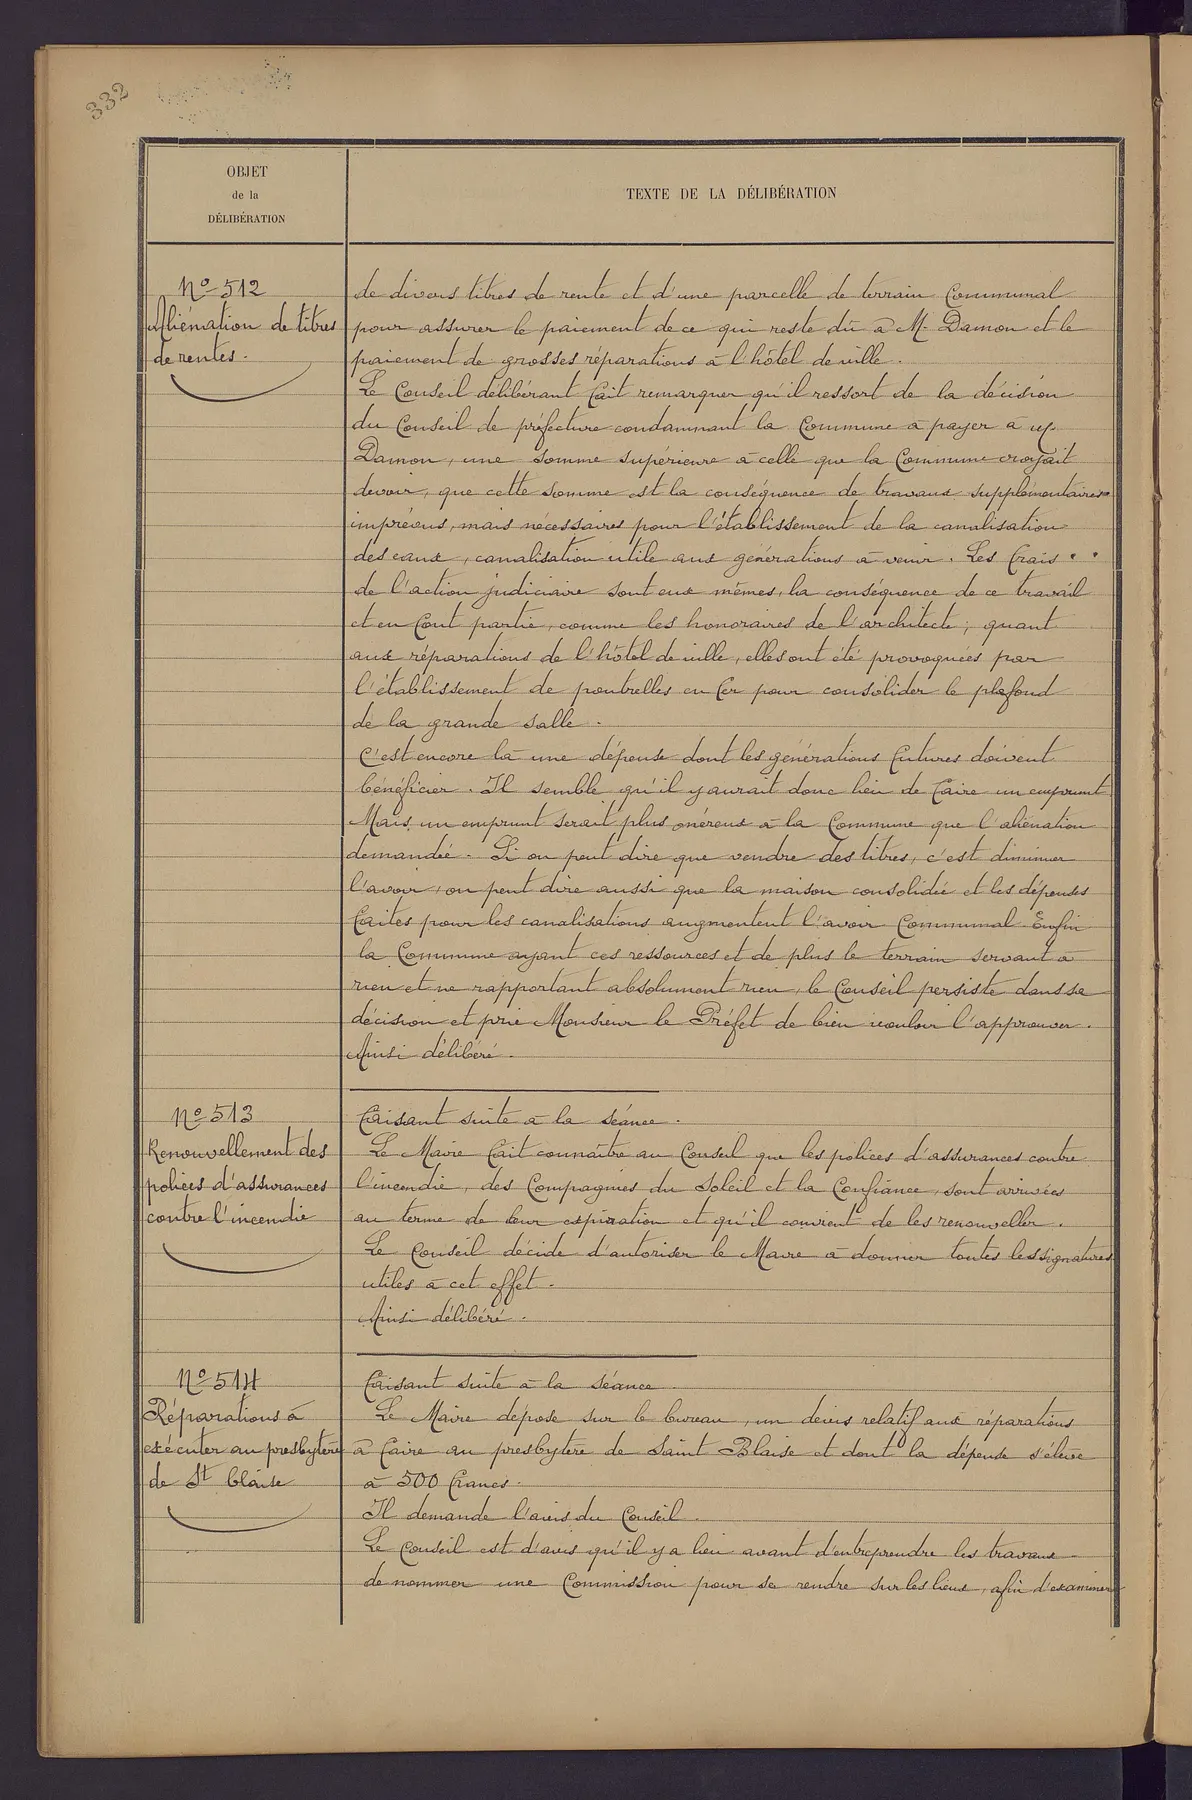 332
OBJET
de la
DÉLIBÉRATION
TEXTE DE LA DÉLIBÉRATION
Nº 512
Aliénation de titres
de rentes.
de divers titres de rente et d'une parcelle de terrain Communal
pour assurer le paiement de ce qui reste dû à M. Damon et le
paiement de grosses réparations à l'hôtel de ville.
Le Conseil délibérant fait remarquer qu'il ressort de la décision
du Conseil de préfecture condamnant la Commune à payer à M.
Damon, une somme supérieure à celle que la Commune croyait
devoir, que cette somme est la conséquence de travaux supplémentaires
imprévus, mais nécessaires pour l'établissement de la canalisation
des eaux, canalisation utile aux générations à venir. Les frais
de l'action judiciaire sont eux mêmes, la conséquence de ce travail
et en font partie, comme les honoraires de l'architecte; quant
aux réparations de l'hôtel de ville, elles ont été provoquées par
l'établissement de poutrelles en fer pour consolider le plafond
de la grande salle.
C'est encore là une dépense dont les générations futures doivent
bénéficier. Il semble qu'il y aurait donc lieu de faire un emprunt
Mais un emprunt serait plus onéreux à la Commune que l'aliénation
demandée. Si on peut dire que vendre des titres, c'est diminuer
l'avoir, on peut dire aussi que la maison consolidée et les dépenses
faites pour les canalisations augmentent l'avoir Communal. Enfin
la Commune ayant ces ressources et de plus le terrain servant à
rien et ne rapportant absolument rien, le Conseil persiste dans sa
décision et prie Monsieur le Préfet de bien vouloir l'approuver.
Ainsi délibéré.
Nº 513
Renouvellement des
polices d'assurances
contre l'incendie
Faisant suite à la séance.
Le Maire fait connaître au Conseil que les polices d'assurances contre
l'incendie, des Compagnies du Soleil et la Confiance, sont arrivées
au terme de leur expiration et qu'il convient de les renouveller.
Le Conseil décide d'autoriser le Maire à donner toutes les signatures
utiles à cet effet.
Ainsi délibéré.
Nº 514
Réparations à
exécuter au presbytère
de St blaise
Faisant suite à la séance
Le Maire dépose sur le bureau, un devis relatif aux réparations
à faire au presbytère de Saint Blaise et dont la dépense s'élève
à 500 francs.
Il demande l'avis du Conseil.
Le Conseil est d'avis qu'il y a lieu avant d'entreprendre les travaux
de nommer une Commission pour se rendre sur les lieux, afin d'examiner